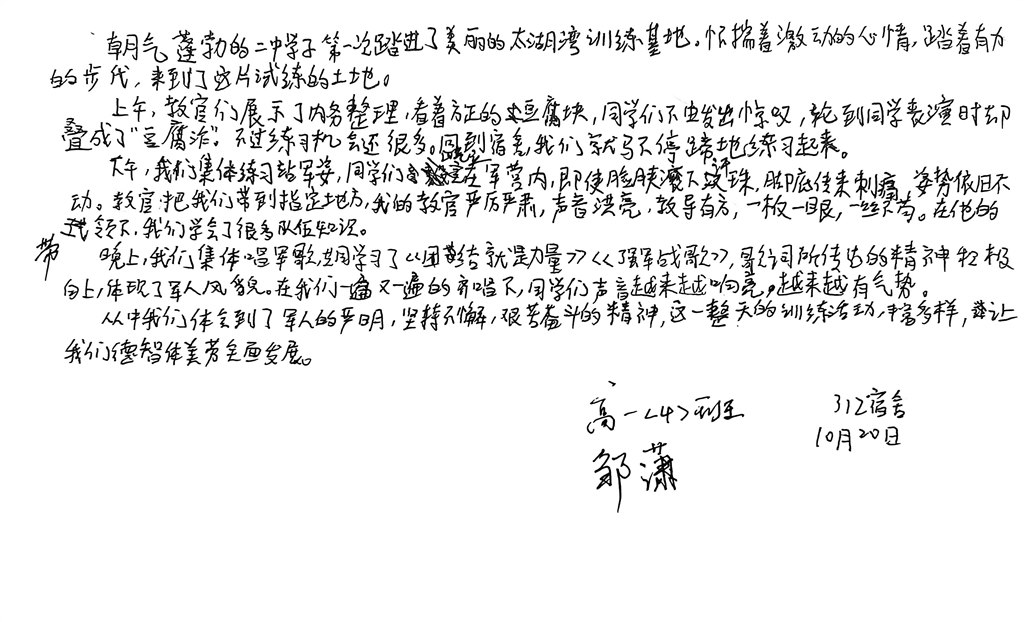 朝气蓬勃的二中学子第一次踏进了美丽的太湖湾训练基地。怀揣着激动的心情,踏着有力
的步代,来到了这片试练的土地。
上午,教官们展示了内务整理,看着方正的豆腐块,同学们不由发出惊叹,轮到同学表演时却
叠成了"豆腐渣"。不过练习机会还很多。回到宿舍,我们就马不停蹄地练习起来。
下午,我们集体练习站军姿,同学们在军营内,即使脸颊滚下汗珠,脚底传来刺痛,姿势依旧不
动。教官把我们带到指定地方,我的教官严厉严肃,声音洪亮,教导有方,一板一眼,一丝不苟。在他的
带领下,我们学会了很多队伍知识。
晚上,我们集体唱军歌,共同学习了《团结就是力量》《强军战歌》,歌词所传达的精神积极
向上,体现了军人风貌。在我们一遍又一遍的齐唱下,同学们声音越来越响亮,越来越有气势。
从中我们体会到了军人的严明,坚持不懈,艰苦奋斗的精神,这一整天的训练活动,丰富多样,让
我们德智体美劳全面发展。
高一<4>班 312宿舍
10月20日
邹潇